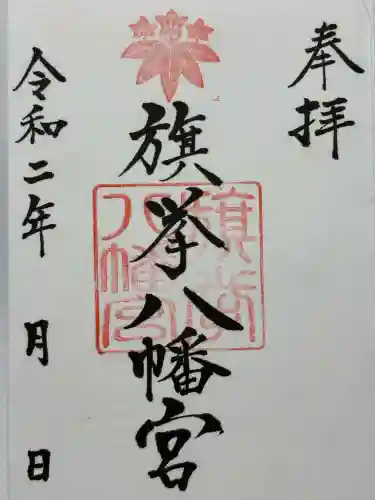 奉拝
旗挙八幡宮
旗挙八幡宮
令和二年 月 日